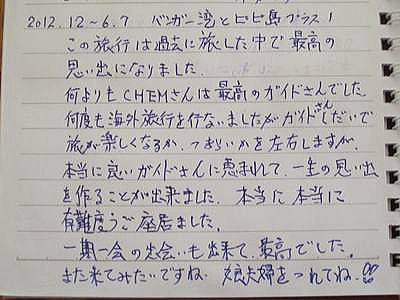 2012.12~6.7 パンガー湾とピピ島プラス1
この旅行は過去に旅した中で最高の
思い出になりました。
何よりもCHEMさんは最高のガイドさんでした
何度も海外旅行を行ないましたがガイドさんしだいで
旅が楽しくなるか、つまらいかを左右しますが、
本当に良いガイドさんに恵まれて、一生の思い出
を作ることが出来ました。本当に本当に
有難度うご座居ました。
一期一会の出会いも出来て、最高でした。
また来てみたいですね。娘夫婦をつれてね!!